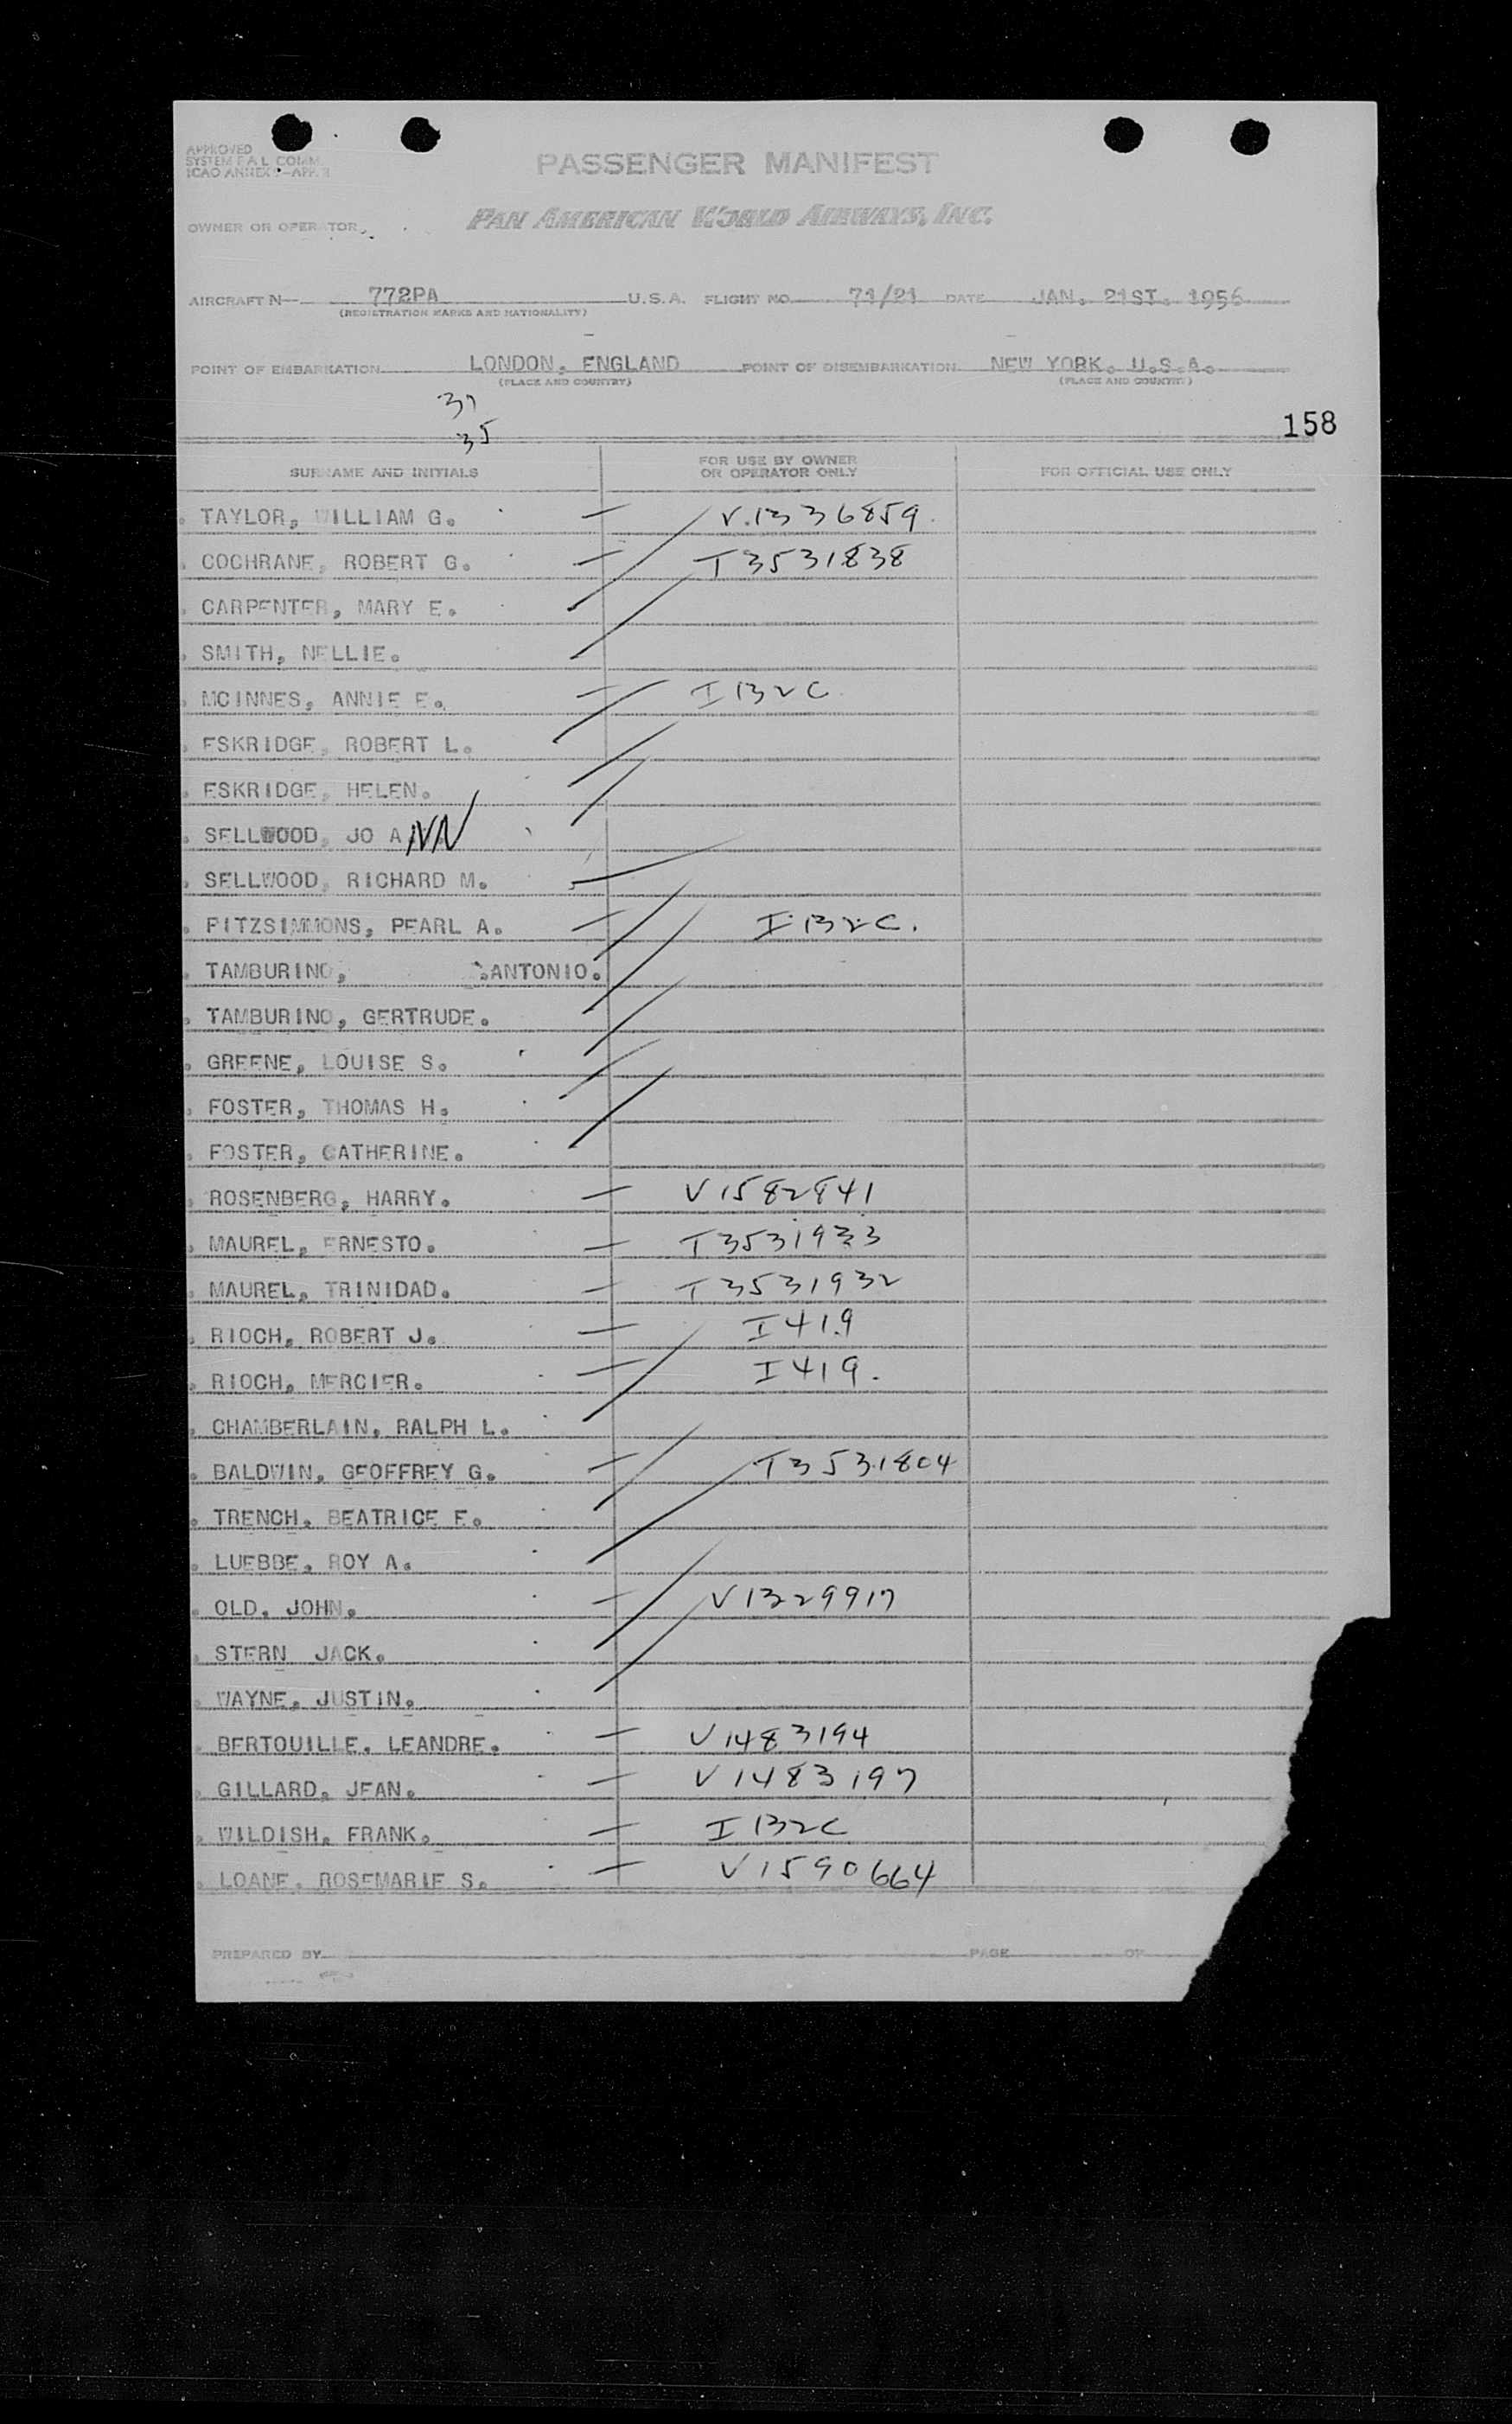 APPROVED
SYSTEM F A L COMM.
ICAO ANNEX 9-APP. 3
PASSENGER MANIFEST
OWNER OR OPERATOR PAN AMERICAN WORLD AIRWAYS, INC.
AIRCRAFT N- 772PA U.S.A. FLIGHT NO. 71/21 DATE JAN. 21ST. 1956
(REGISTRATION MARKS AND NATIONALITY)
POINT OF EMBARKATION LONDON, ENGLAND POINT OF DISEMBARKATION NEW YORK. U.S.A.
(PLACE AND COUNTRY) (PLACE AND COUNTRY)
31
35
158
SURNAME AND INITIALS FOR USE BY OWNER OR OPERATOR ONLY FOR OFFICIAL USE ONLY
TAYLOR, WILLIAM G. V.1336859.
COCHRANE, ROBERT G. T3531838
CARPENTER, MARY E.
SMITH, NELLIE.
MCINNES, ANNIE E. I 132C
ESKRIDGE, ROBERT L.
ESKRIDGE, HELEN.
SELLWOOD, JO ANN
SELLWOOD, RICHARD M.
FITZSIMMONS, PEARL A. I 132C.
TAMBURINO, ANTONIO.
TAMBURINO, GERTRUDE.
GREENE, LOUISE S.
FOSTER, THOMAS H.
FOSTER, CATHERINE.
ROSENBERG, HARRY. V1582841
MAUREL, ERNESTO. T3531933
MAUREL, TRINIDAD. T3531932
RIOCH, ROBERT J. I 419
RIOCH, MERCIER. I 419.
CHAMBERLAIN, RALPH L.
BALDWIN, GEOFFREY G. T3531804
TRENCH, BEATRICE F.
LUEBBE, ROY A.
OLD, JOHN. V1329917
STERN JACK.
WAYNE, JUSTIN.
BERTOUILLE, LEANDRE. V1483194
GILLARD, JEAN. V1483197
WILDISH, FRANK. I 132C
LOANE, ROSEMARIE S. V1590664
PREPARED BY PAGE OF